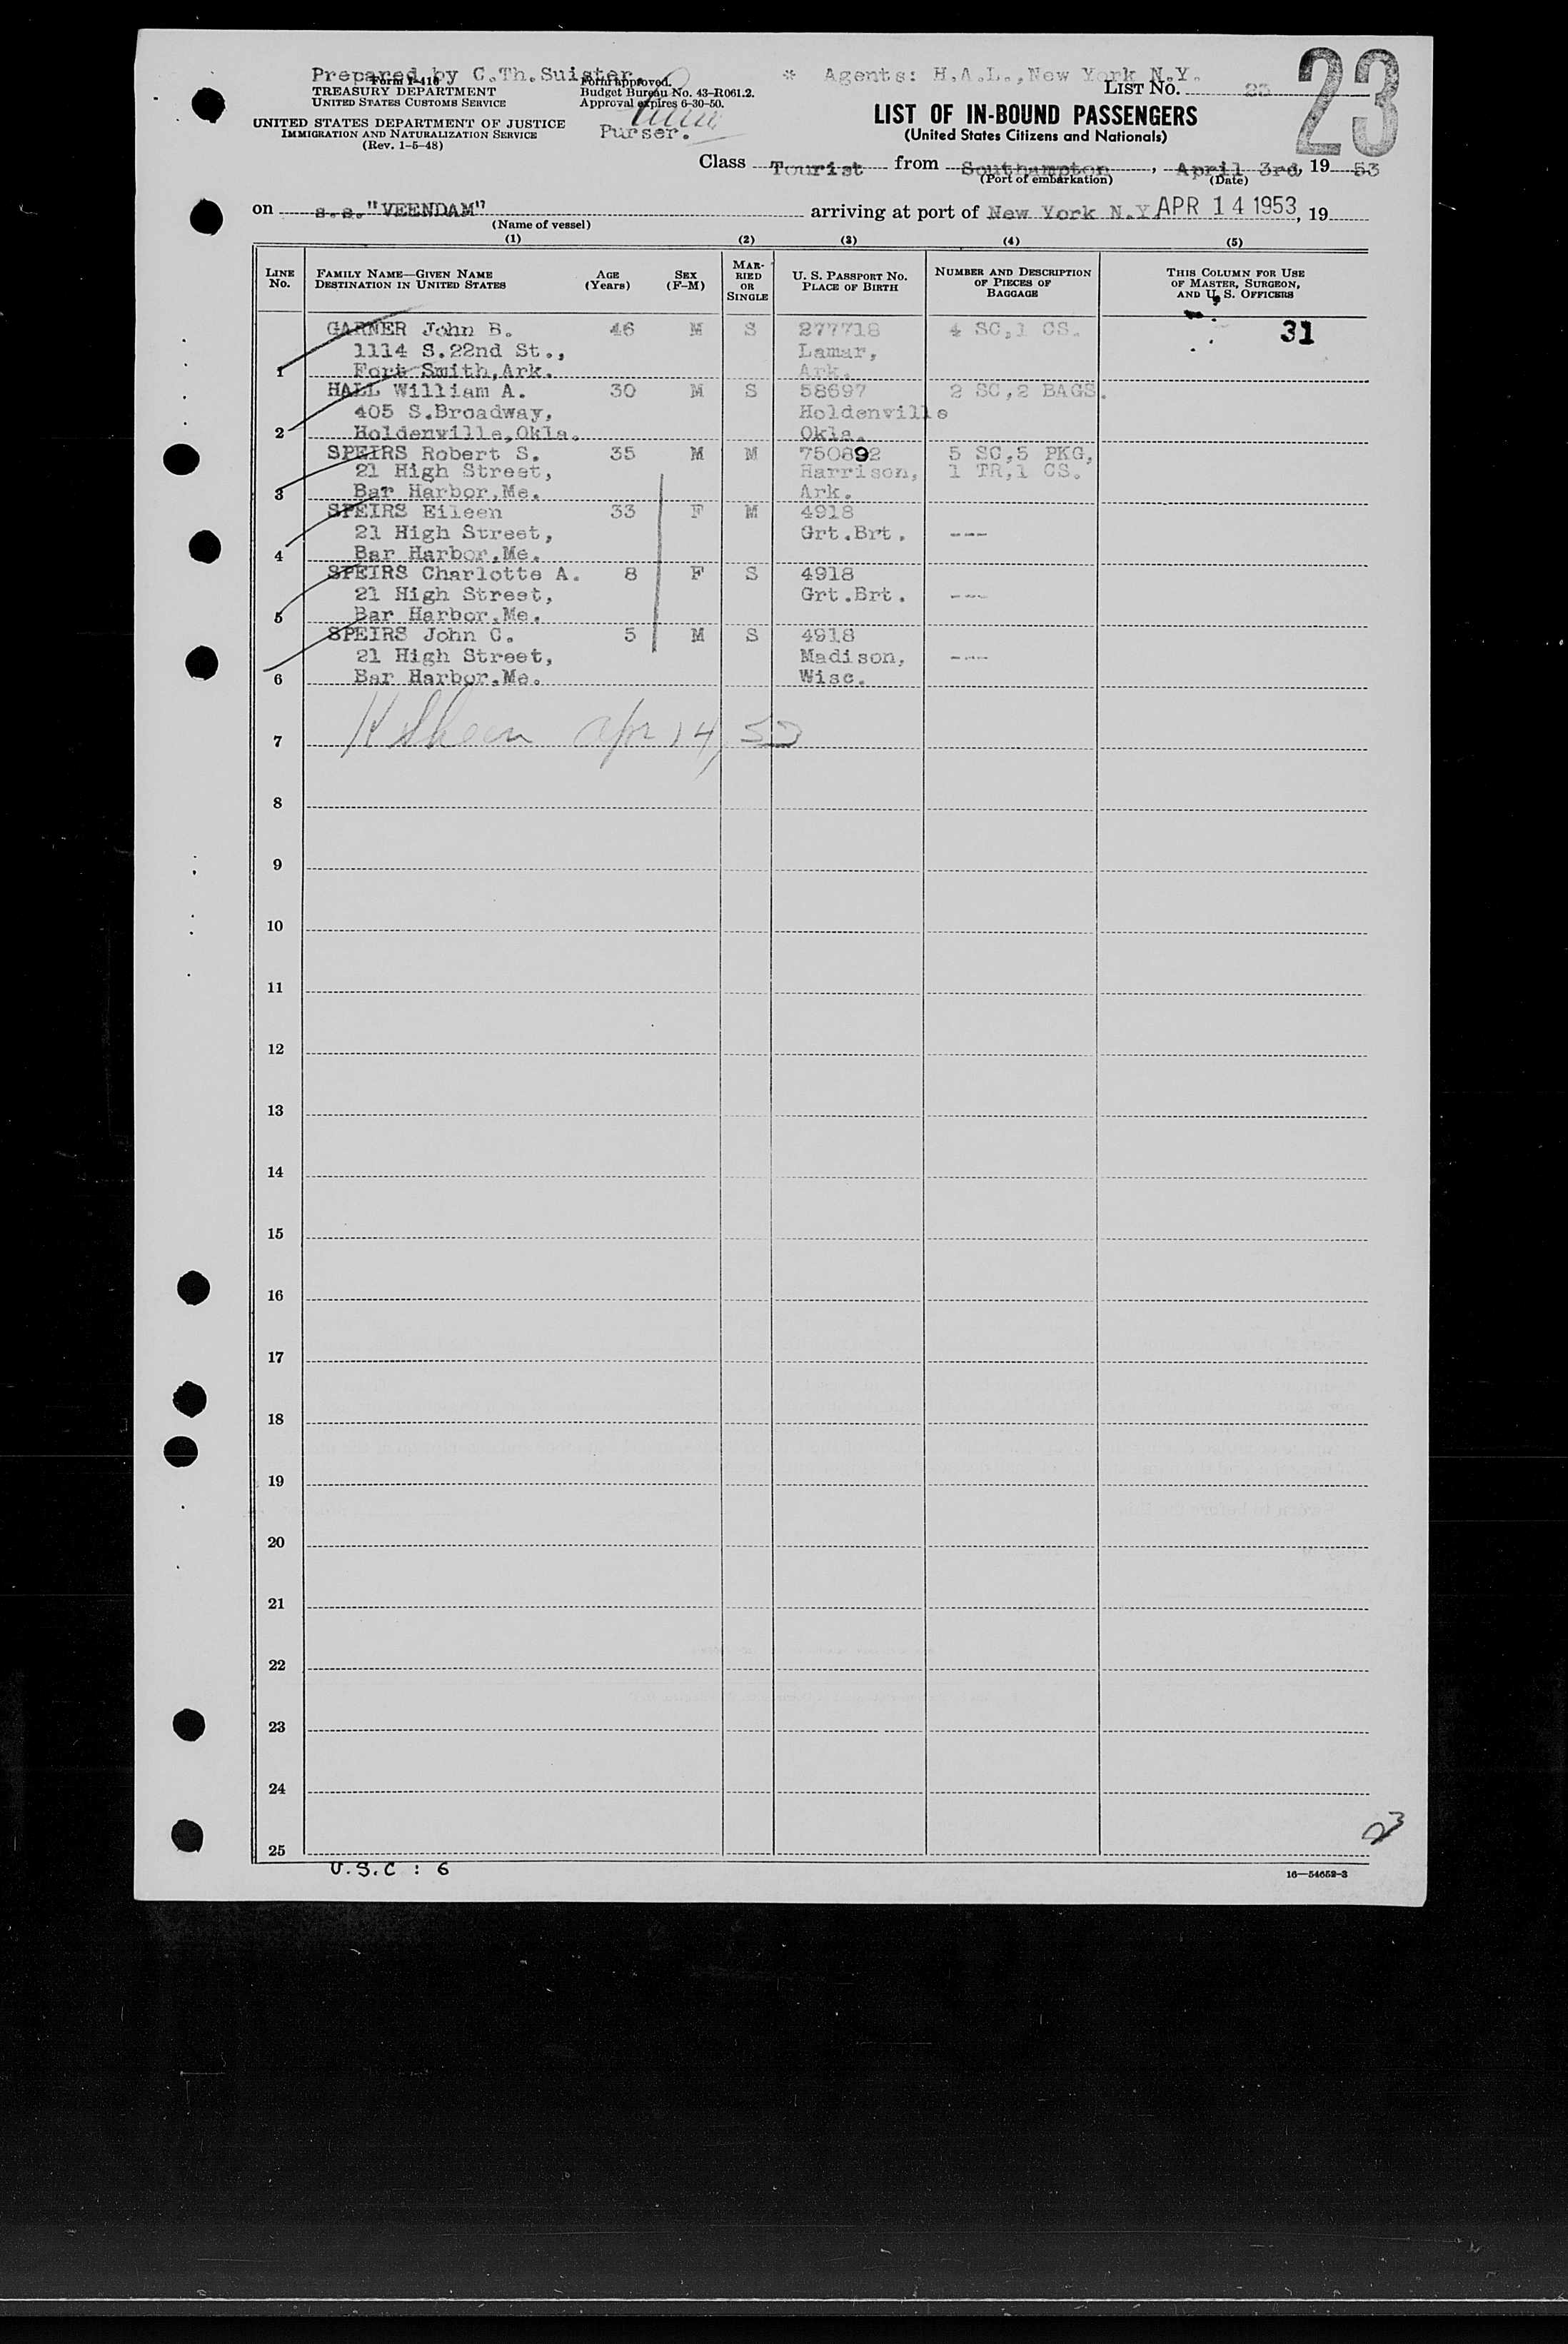 Prepared by C.Th.Suister. * Agents: H.A.L.,New York N.Y. 23
Form I-416 Form approved.
TREASURY DEPARTMENT Budget Bureau No. 43-R061.2. LIST NO. 23
UNITED STATES CUSTOMS SERVICE Approval expires 6-30-50.
LIST OF IN-BOUND PASSENGERS
UNITED STATES DEPARTMENT OF JUSTICE Purser. (United States Citizens and Nationals)
IMMIGRATION AND NATURALIZATION SERVICE
(Rev. 1-5-48)
Class Tourist from Southampton, April 3rd, 19 53
(Port of embarkation) (Date)
on s.s."VEENDAM" arriving at port of New York N.Y. APR 14 1953, 19
(Name of vessel)
(1) (2) (3) (4) (5)
LINE No. FAMILY NAME—GIVEN NAME DESTINATION IN UNITED STATES AGE (Years) SEX (F-M) MARRIED OR SINGLE U. S. PASSPORT NO. PLACE OF BIRTH NUMBER AND DESCRIPTION OF PIECES OF BAGGAGE THIS COLUMN FOR USE OF MASTER, SURGEON, AND U. S. OFFICERS
GARNER John B. 46 M S 277718 4 SC,1 CS. 31
1114 S.22nd St., Lamar,
1 Fort Smith,Ark. Ark.
HALL William A. 30 M S 58697 2 SC,2 BAGS.
405 S.Broadway, Holdenville
2 Holdenville,Okla. Okla.
SPEIRS Robert S. 35 M M 750892 5 SC,5 PKG,
21 High Street, Harrison, 1 TR,1 CS.
3 Bar Harbor,Me. Ark.
SPEIRS Eileen 33 F M 4918
21 High Street, Grt.Brt. ---
4 Bar Harbor,Me.
SPEIRS Charlotte A. 8 F S 4918
21 High Street, Grt.Brt. ---
5 Bar Harbor,Me.
SPEIRS John C. 5 M S 4918
21 High Street, Madison, ---
6 Bar Harbor,Me. Wisc.
7 Apr 14, 53
8
9
10
11
12
13
14
15
16
17
18
19
20
21
22
23
24
23
25
U.S.C : 6 16—54652-3